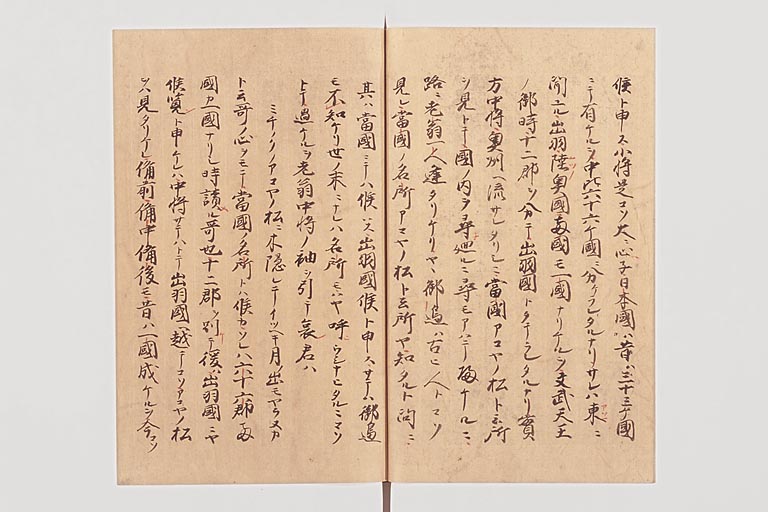 候ト申ス小将是コソ大ニ心子日本國ハ昔ハ三十三ケ國
ニテ有ケルヲ中比六十六ケ國ニ分ラレタルナリサレハ東ニ
聞ユル出羽陸奥國両國モ一國ナリケルヲ文武天王
ノ御時十二郡ヲ分テ出羽國トタテラレタルナリ實
方中将奥州ヘ流サレタリシニ當國アコヤノ松ト云所
ヲ見トテ國ノ内ヲ尋廻ルニ尋モアハテ帰ケルニ
路ニ老翁一人逢タリケリヤヽ御邊ハ古ニ人トコソ
見レ當國ノ名所アコヤノ松ト云所ヤ知タルト問ニ
其ハ當國ニテハ候ハス出羽國候ト申スサテハ御邊
モ不知ケリ世ノ末ニナレハ名所モハヤ呼ウシナヒタルニコソ
トテ過ケルヲ老翁中将ノ袖ヲ引テ哀君ハ
ミチノクノアコヤノ松ニ木隠レテイツヘキ月ノ出モヤラヌカ
ト云哥ノ心ヲモテ當國ノ名所トハ候カソレハ六十六郡両
國カ一國ナリシ時讀ル哥也十二郡ヲ別テ後ハ出羽國ニヤ
候覧ト申ケレハ中将サテハトテ出羽國ヘ越テコソアコヤノ松
ヲハ見タリケレ備前備中備後モ昔ハ一國成ケルヲ今コソ